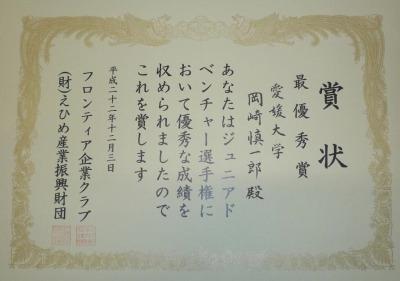 賞状
最優秀賞
愛媛大学
岡崎慎一郎殿
あなたはジュニアド
ベンチャー選手権に
おいて優秀な成績を
収められましたので
これを賞します
平成二十二年十二月三日
フロンティア企業クラブ
(財)えひめ産業振興財団